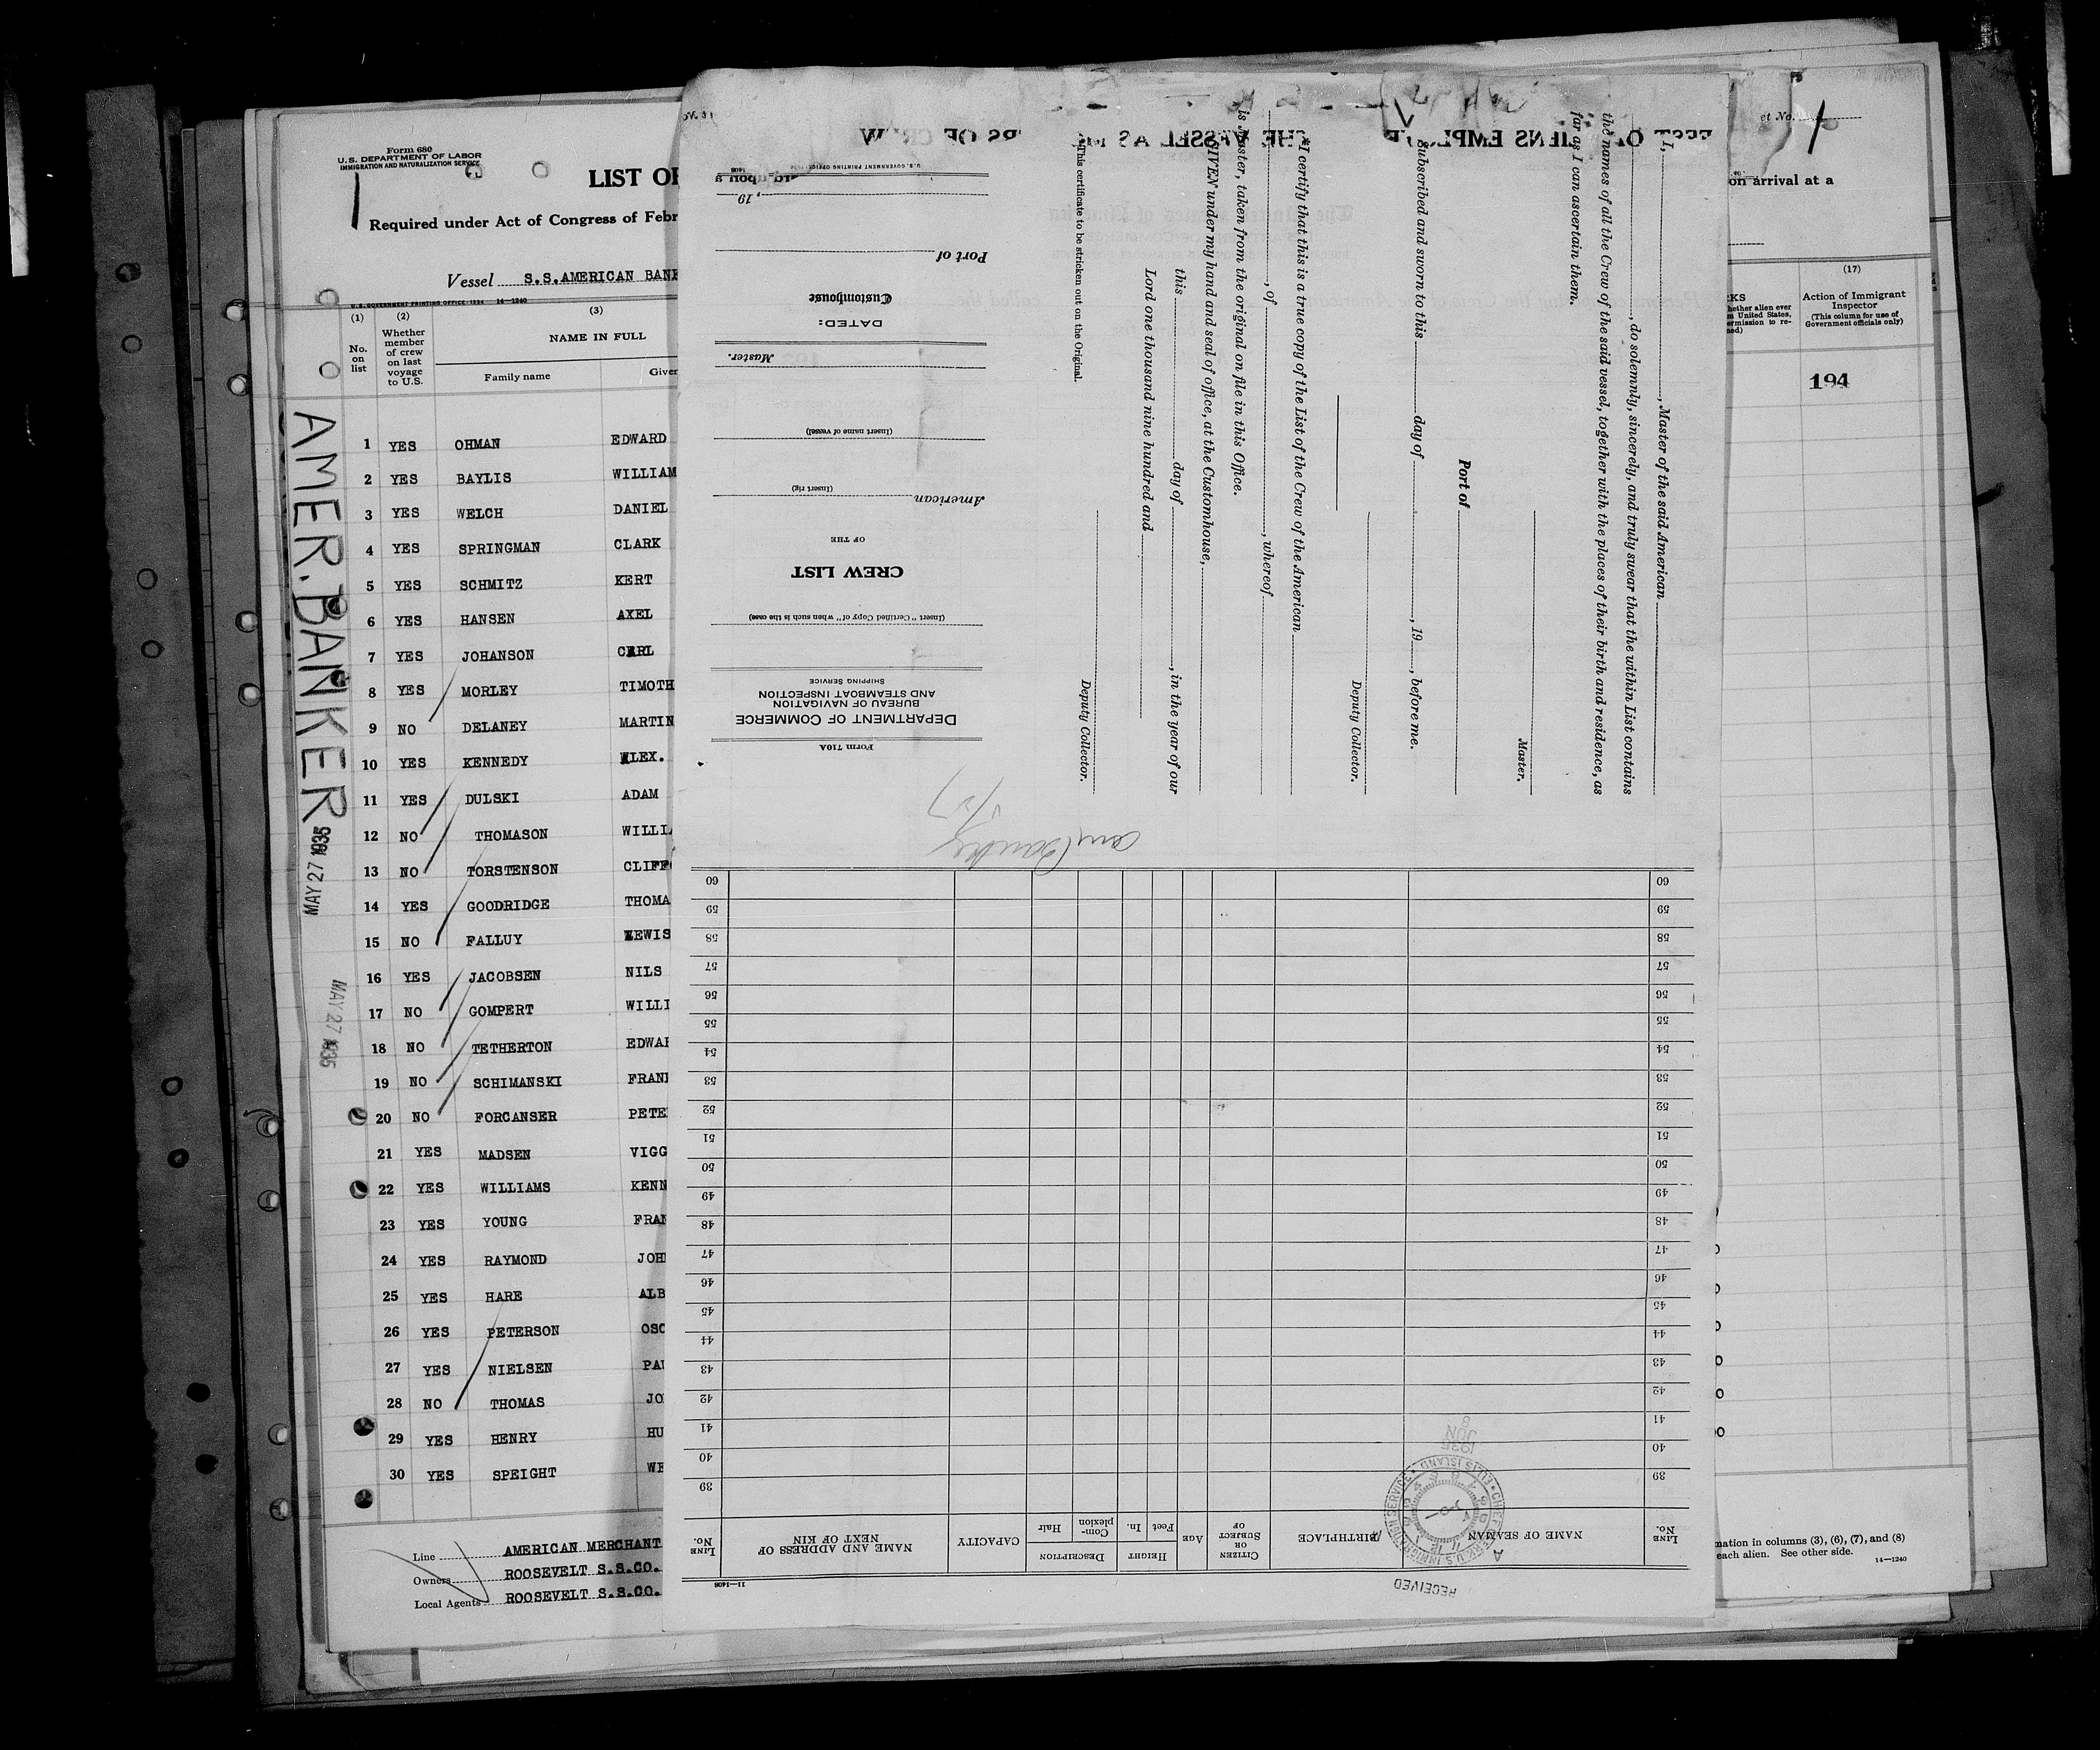 Form 680
U.S. DEPARTMENT OF LABOR
IMMIGRATION AND NATURALIZATION SERVICE
LIST OF
Required under Act of Congress of Febr
Vessel S.S.AMERICAN BANK
U.S. GOVERNMENT PRINTING OFFICE: 1934 14—1240
(1) (2) (3)
No. on list
Whether member of crew on last voyage to U.S.
NAME IN FULL
Family name Given
1 YES OHMAN EDWARD
2 YES BAYLIS WILLIAM
3 YES WELCH DANIEL
4 YES SPRINGMAN CLARK
5 YES SCHMITZ KERT
6 YES HANSEN AXEL
7 YES JOHANSON CARL
8 YES MORLEY TIMOTH
9 NO DELANEY MARTIN
10 YES KENNEDY ALEX.
11 YES DULSKI ADAM
12 NO THOMASON WILLI
13 NO TORSTENSON CLIFF
14 YES GOODRIDGE THOMA
15 NO FALLUY LEWIS
16 YES JACOBSEN NILS
17 NO GOMPERT WILLI
18 NO TETHERTON EDWA
19 NO SCHIMANSKI FRAN
20 NO FORCANSER PETE
21 YES MADSEN VIGG
22 YES WILLIAMS KENN
23 YES YOUNG FRAN
24 YES RAYMOND JOH
25 YES HARE ALB
26 YES PETERSON OSC
27 YES NIELSEN PAU
28 NO THOMAS JO
29 YES HENRY HU
30 YES SPEIGHT WE
Line AMERICAN MERCHANT
Owners ROOSEVELT S.S.CO.
Local Agents ROOSEVELT S.S.CO.
AMER. BANKER
MAY 27 1935
MAY 27 1935
I, , Master of the said American
, do solemnly, sincerely, and truly swear that the within List contains
the names of all the Crew of the said vessel, together with the places of their birth and residence, as
far as I can ascertain them.
Master.
Port of
Subscribed and sworn to this day of , 19 , before me.
Deputy Collector.
*I certify that this is a true copy of the List of the Crew of the American
, of , whereof
is Master, taken from the original on file in this Office.
GIVEN under my hand and seal of office, at the Customhouse,
this day of , in the year of our
Lord one thousand nine hundred and
Deputy Collector.
*This certificate to be stricken out on the Original.
Form 710A
DEPARTMENT OF COMMERCE
BUREAU OF NAVIGATION
AND STEAMBOAT INSPECTION
SHIPPING SERVICE
(Insert "Certified Copy of" when such is the case)
CREW LIST
OF THE
American
(Insert rig)
(Insert name of vessel)
Master.
DATED:
Customhouse
Port of
, 19
U.S. GOVERNMENT PRINTING OFFICE
5/27
LINE No.
NAME OF SEAMAN
BIRTHPLACE
CITIZEN OR SUBJECT OF
AGE
HEIGHT
Feet In.
DESCRIPTION
Complexion Hair
CAPACITY
NAME AND ADDRESS OF NEXT OF KIN
LINE No.
39 39
40 40
41 41
42 42
43 43
44 44
45 45
46 46
47 47
48 48
49 49
50 50
51 51
52 52
53 53
54 54
55 55
56 56
57 57
58 58
59 59
60 60
11—1408
RECEIVED
CHIEF CLERK U.S. IMMIGRATION SERVICE • ELLIS ISLAND
1935
JUN
et No.
on arrival at a
(17)
Action of Immigrant Inspector
(This column for use of Government officials only)
194
mation in columns (3), (6), (7), and (8)
each alien. See other side.
14—1240